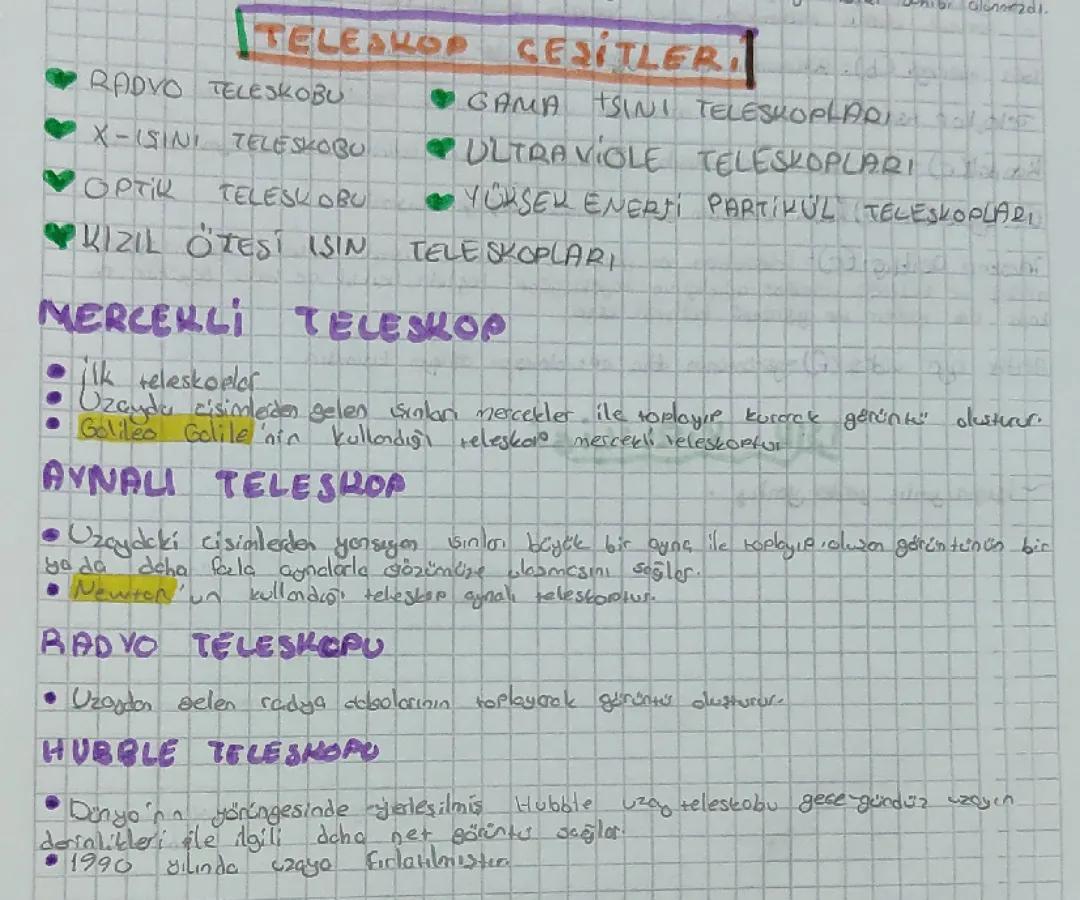 alınmazdı.
TELESKOP ÇEŞİTLERİ
RADYO TELESKOBU
GAMA IŞINI TELESKOPLARI
X-IŞINI TELESKOBU
ULTRAVİOLE TELESKOPLARI
OPTİK TELESKOBU
YÜKSEK ENERJİ PARTİKÜL TELESKOPLARI
KIZIL ÖTESİ IŞIN TELESKOPLARI
MERCEKLİ TELESKOP
• İlk teleskoplar
• Uzayda cisimlerden gelen ışınları mercekler ile toplayıp kırarak görüntü oluşturur.
• Galileo Galile'nin kullandığı teleskop mercekli teleskoptur
AYNALI TELESKOP
• Uzaydaki cisimlerden yansıyan ışınları büyük bir ayna ile toplayıp oluşan görüntünün bir
ya da daha fazla aynalarla gözümüze ulaşmasını sağlar.
• Newton'un kullandığı teleskop aynalı teleskoptur.
RADYO TELESKOPU
• Uzaydan gelen radyo dalgalarının toplayarak görüntü oluşturur.
HUBBLE TELESKOPU
• Dünya'nın yörüngesinde yerleşilmiş Hubble uzay teleskobu gece-gündüz uzayın
derinlikleri ile ilgili daha net görüntü sağlar.
• 1990 yılında uzaya fırlatılmıştır.